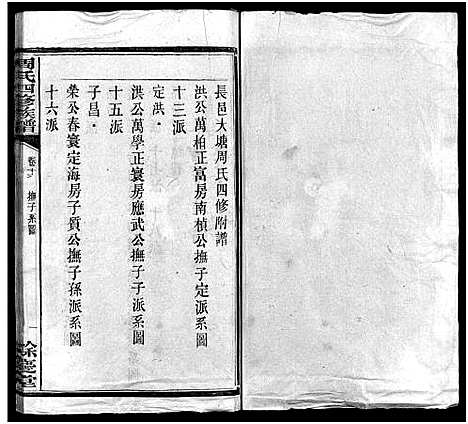 長邑大塘周氏四修附譜
洪公萬相正富房南楨公撫子定派系圖
十三派
定洪
洪公萬學正寰房應武公撫子子派系圖
十五派
子昌
榮公春寰定海房子質公撫子孫派系圖
十六派
周氏四修族譜
撫子系圖
一
餘慶堂